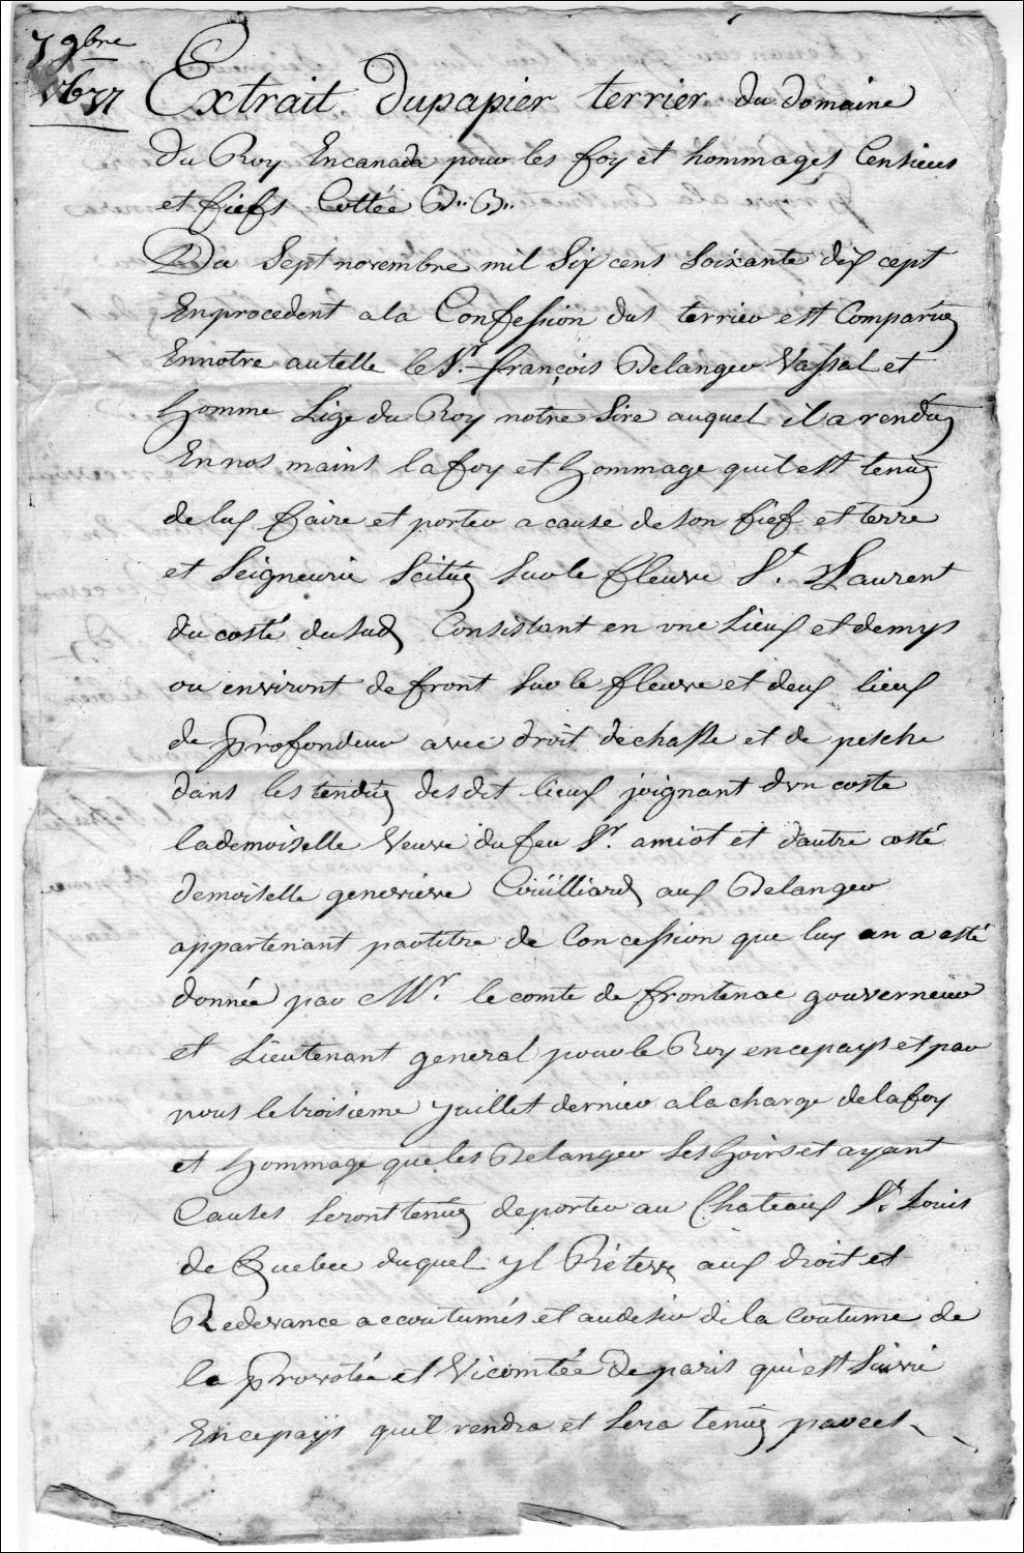 7 9bre
1677
Extrait Dupapier terrier du domaine
Du Roy Encanada pour les foy et hommages Censieus
et fiefs Cottée B.. B..
Du Sept novembre mil Six cens Soixante dix cept
Enprocedent ala Confession dut terrier est Comparüe
Ennotre autelle le Sr. françois Belanger Vassal et
homme Lige du Roy notre Sire auquel il a rendüe
En nos mains la foy et hommage quil est tenüe
de luy faire et porter a cause de son fief et terre
et Seigneurie Scitüe Sur le fleuve St. Laurent
du costé du Sud Consistant en vne Lieux et demys
ou environt de front Sur le fleuve et deux lieux
de profondeur avec droit dechasse et de pesche
dans les tendüe desdet lieux joignant dvn coste
lademoiselle Veuve du feu Sr. amiot et dautre costé
demoiselle genevieve Coüilliard aux Belanger
appartenant partitre de Concession que luy en a esté
donnée par Mr. le comte de frontenac gouverneur
et Lieutenant general pour le Roy encepays et par
nous le troisieme Juillet dernier a la charge de la foy
et hommage que les Belanger Ses hoirs et ayant
Causes Seront tenüe deporter au Chateaux St. Louis
de Quebec duquel yl Réleve aux droit et
Redevance accoutumés et audesir de la Coutume de
la provotée et Vicomtée De paris qui est Suivie
Encepays quil rendra et Sera tenüe par ces